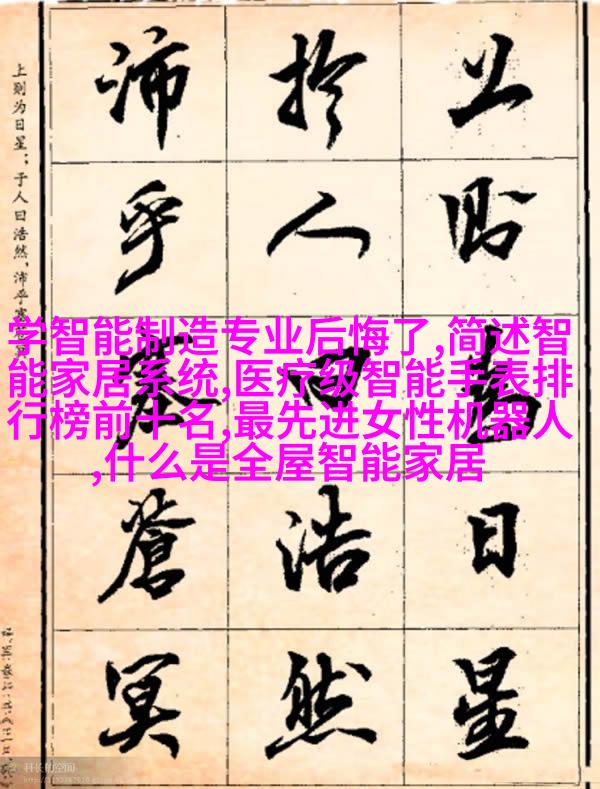 上則為日星
扵人曰浩然
沛乎塞蒼冥
上则为日星；于人曰浩然，沛乎塞苍冥
学智能制造专业后悔了,简述智
能家居系统,医疗级智能手表排
行榜前十名,最先进女性机器人
,什么是全屋智能家居
科长的空间